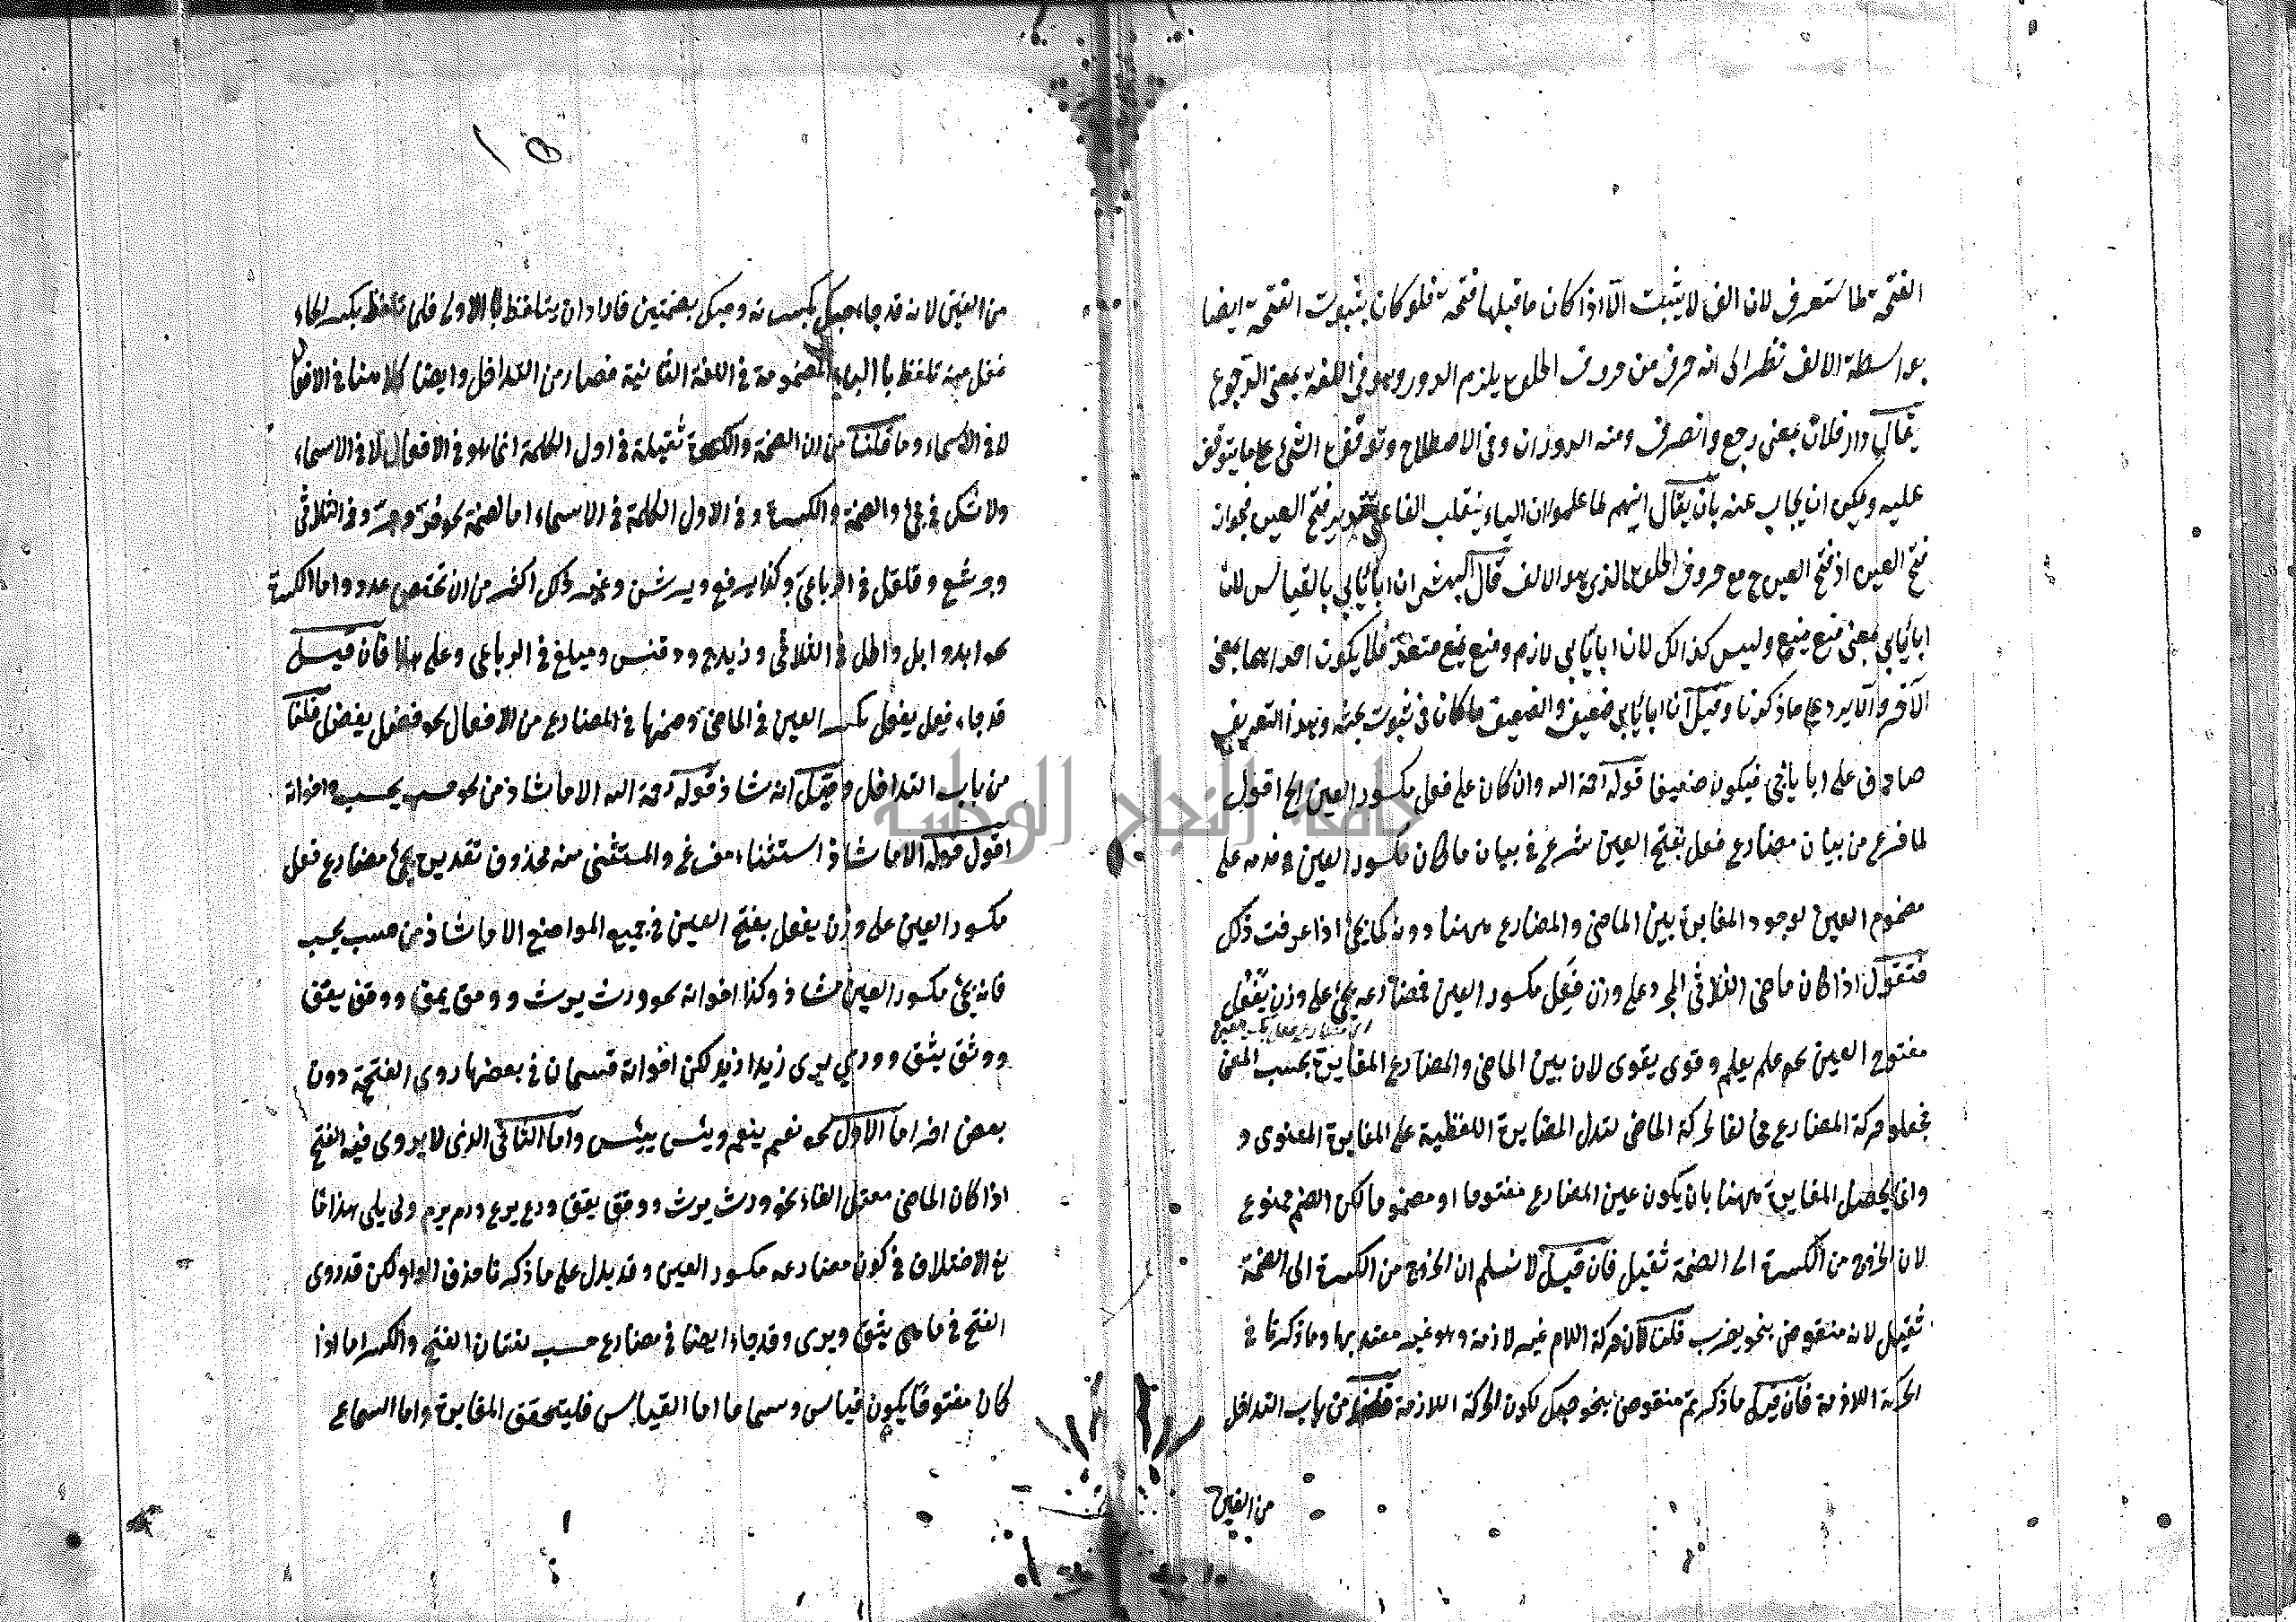 الفتحة لما ستعرف لان الف لا يثبت الا اذا كان ما قبلها فتحة فلو كان ثبوت الفتحة ايضا
بواسطة الالف نظرا الى انه حرف من حروف الحلق يلزم الدور وهو في اللغة بمعنى الرجوع
يقال دار فلان بمعنى رجع وانصرف ومنه الدوران وفي الاصطلاح وتوقف الشئ على ما يتوقف
عليه ويمكن ان يجاب عنه بان يقال انهم لما علموا ان الياء ينقلب الفا على تقدير فتح العين فجواز
فتح العين اذ فتح العين ح مع حروف الحلق الذي هو الالف قال ان ابا يأبي بالقياس لان
ابا يأبي بمعنى منع يمنع وليس كذالك لان ابا يأبي لازم ومنع يمنع متعد فلا يكون احدايهما بمعنى
الآخر والا يرد على ما ذكرنا وقيل ان ابا يأبي ضعيف والضعيف ما كان في ثبوت بحث وهذا التعريف
صادق على ابا يأبي فيكون ضعيفا قوله رحمة الله وان كان على فعل مكسور العين الخ اقول
لما فرغ من بيان مضارع فعل بفتح العين شرع في بيان ما كان مكسور العين وقدمه على
مضموم العين لوجود المغايرة بين الماضي والمضارع ههنا دونه كما يجئ اذا عرفت ذلك
فتقول اذا كان ماضي الثلاثي المجرد على وزن فَعِل مكسور العين فمضارعه يجئ على وزن يفعل
مفتوح العين نحو علم يعلم وقوى يقوى لان بين الماضي والمضارع المغايرة بحسب المعنى
فجعلو حركة المضارع مخالفا لحركة الماضي لتدل المغايرة اللفظية على المغايرة المعنوى و
وانما يحصل المغايرة ههنا بان يكون عين المضارع مفتوحا او مضموما لكن الضم ممنوع
لان الخروج من الكسرة الى الضمة ثقيل فان قيل لا نسلم ان الخروج من الكسرة الى الضمة
ثقيل لانه منقوض بنحو يضرب قلنا كان حركة اللام غير لازمة وهو غير معتد بها وما ذكرنا في
الحركة اللازمة فان قيل ما ذكرتم منقوض بنحو حبك لكون الحركة اللازمة قلنا من باب التداخل
من الغين
١٥
من الغين لانه قد جاء حبك بكسرته وحبك بضمتين فاراد ان يتلفظ بالاولى فلما تلفظ بكسر الحاء
غفل عنه تلفظ بالباء المضمومة في اللغة الثانية فصار من التداخل وايضا كلامنا في الافعال
لا في الاسماء وما قلنا من ان الضمة والكسرة ثقيلة في اول الكلمة انما هو في الافعال لا في الاسماء
ولا شك في مجئ والضمة والكسرة وفي الاول الكلمة في الاسماء اما لضمة نحو وفي الثلاثي
وبرشع وقلقل في الرباعي وكذا يرفع وغير ذلك اكثر من ان تختص عدد واما الكسرة
نحو ابد وابل واطل في الثلاثي وزبرج ودقنس ومبلغ في الرباعي وعلى هذا فان قيل
قد جاء فعل يفعل بكسر العين في الماضي وضمها في المضارع من الافعال نحو فضل يفضل قلنا
من باب التداخل وقيل انه شاذ قوله رحمة الله الا ما شاذ من نحو حسب يحسب واخواته
اقول قوله الا ما شاذ استثناء مفرغ والمستثنى منه محذوف تقديره يجئ مضارع فعل
مكسور العين على وزن يفعل بفتح العين في جميع المواضع الا ما شاذ من حسب يحسب
فانه يجئ مكسور العين شاذ وكذا اخواته نحو ورث يرث وومق يمق ووفق يفق
ووثق يثق ووري يرى زيدا لكن اخواته قسمان في بعضها روي الفتحة دون
بعض اخر اما الاول نحو نعم ينعم وبئس يبئس واما الثاني الذي لا يروى فيه الفتح
اذا كان الماضي معتل الفاء نحو ورث يرث ووفق يفق وورع يرع وورم يرم وولى يلى هذا ما
في الاختلاف في كون مضارعه مكسور العين وقد يدل على ما ذكرنا حذف الواو لكن قد روى
الفتح في ماضي يثق ويرى وقد جاء ايضا في مضارع حسب لغتان الفتح والكسر اما اذا
كان مفتوحا يكون قياس وسماعا اما القياس فليتحقق المغايرة واما السماعى